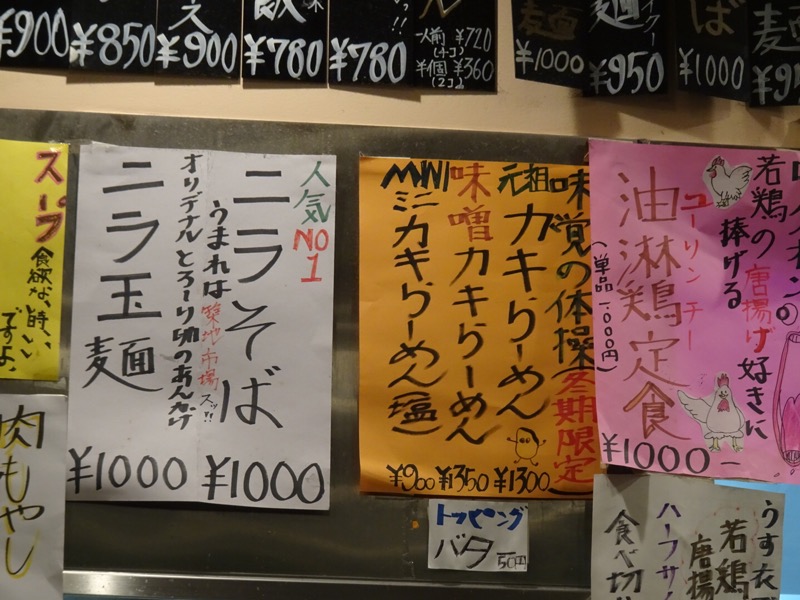 ¥900
¥850
ス
¥900
飯
¥780
¥780
一人前 ¥720
半個 ¥360
麺
¥1000
麺
¥950
ば
¥1000
麺
スープ
食欲ない時いい
ですよ。
人気NO1
ニラそば
うまれは築地市場スッ!!
¥1000
オリヂナルとろーり卵のあんかけ
ニラ玉麺
¥1000
味覚の体操(冬期限定)
元祖カキらーめん
¥1300
味噌カキらーめん
¥1350
MINIミニカキらーめん(塩)
¥900
トッピング
バタ 50円
若鶏の唐揚げ好きに
捧げる
ユーリンチー
油淋鶏定食
(単品一.000円)
¥1000
肉もやし
うす衣で
若鶏
唐揚
ハーフサイ
食べ切り